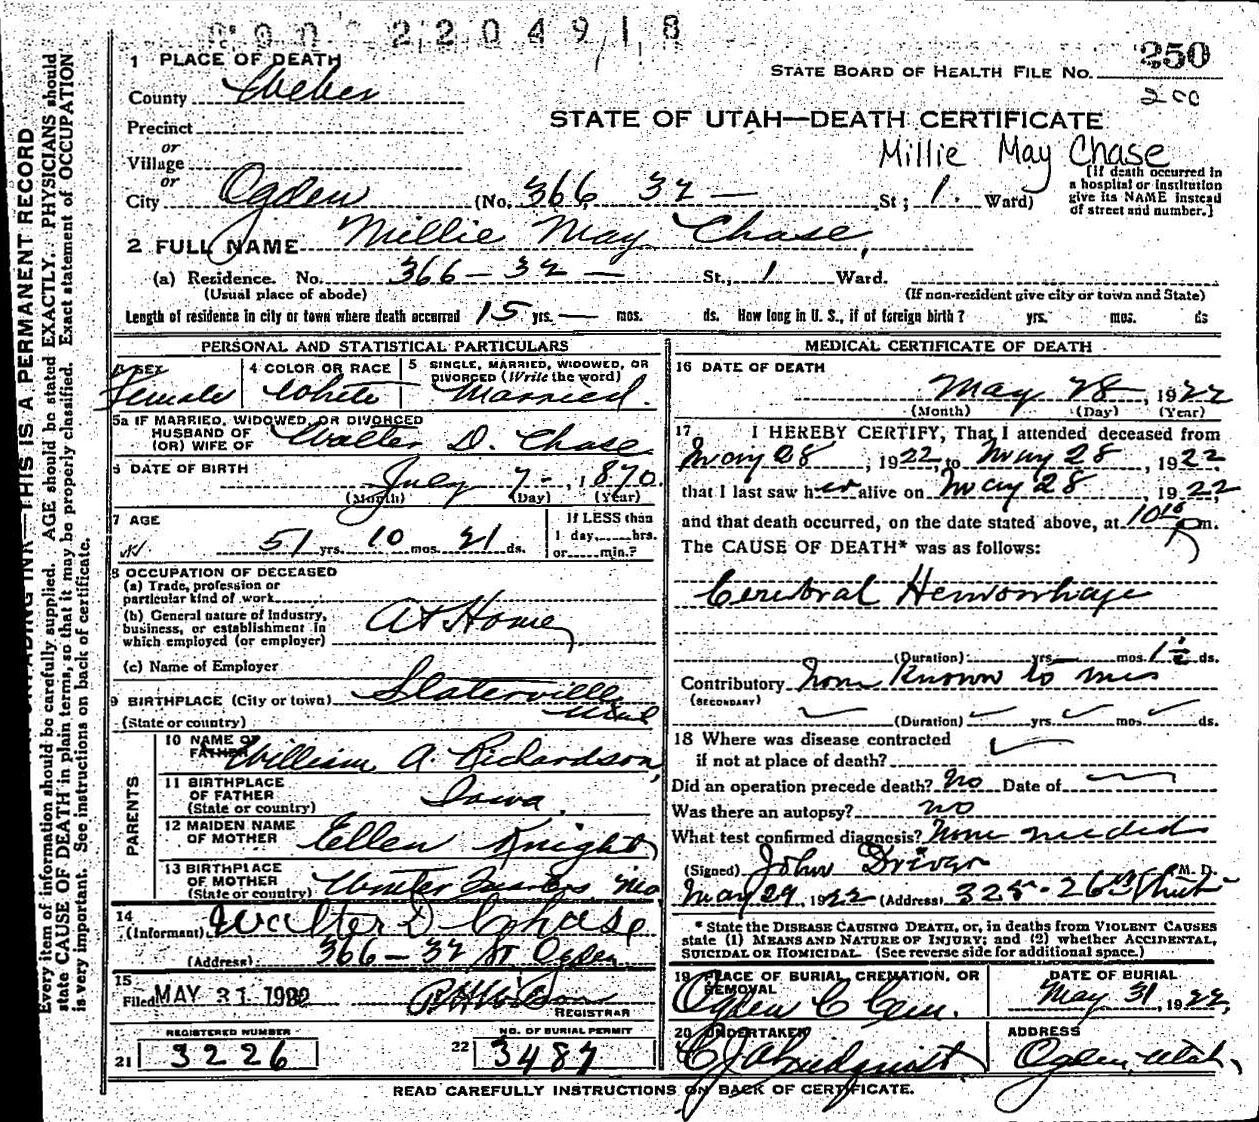 2204918
1 PLACE OF DEATH
County Weber
STATE BOARD OF HEALTH FILE NO. 250
200
Precinct
or
Village
or
STATE OF UTAH—DEATH CERTIFICATE
Millie May Chase
City Ogden (No. 366 32 — St; 1. Ward)
[If death occurred in
a hospital or institution
give its NAME instead
of street and number.]
2 FULL NAME Millie May Chase,
(a) Residence. No. 366 — 32 — St., 1 Ward.
(Usual place of abode) (If non-resident give city or town and State)
Length of residence in city or town where death occurred 15 yrs. — mos. ds. How long in U. S., if of foreign birth? yrs. mos. ds
PERSONAL AND STATISTICAL PARTICULARS
3 SEX
Female
4 COLOR OR RACE
White
5 SINGLE, MARRIED, WIDOWED, OR
DIVORCED (Write the word)
Married.
5a IF MARRIED, WIDOWED, OR DIVORCED
HUSBAND OF
(OR) WIFE OF Walter D. Chase
6 DATE OF BIRTH
July 7 -, 1870.
(Month) (Day) (Year)
7 AGE
51 yrs. 10 mos. 21 ds.
If LESS than
1 day,......hrs.
or......min.?
8 OCCUPATION OF DECEASED
(a) Trade, profession or
particular kind of work
(b) General nature of Industry,
business, or establishment in
which employed (or employer)
At Home
(c) Name of Employer
9 BIRTHPLACE (City or town) Slaterville
(State or country) Utah
PARENTS
10 NAME OF
FATHER William A. Richardson,
11 BIRTHPLACE
OF FATHER
(State or country) Iowa.
12 MAIDEN NAME
OF MOTHER Ellen Knight
13 BIRTHPLACE
OF MOTHER
(State or country) Winter Quarters, Mo
14
(Informant) Walter D Chase
(Address) 366 — 32 St Ogden
15
Filed MAY 31 1922
REGISTRAR
REGISTERED NUMBER
21 3226
NO. OF BURIAL PERMIT
22 3487
MEDICAL CERTIFICATE OF DEATH
16 DATE OF DEATH
May 28, 1922
(Month) (Day) (Year)
17 I HEREBY CERTIFY, That I attended deceased from
May 28, 1922, to May 28, 1922
that I last saw her alive on May 28, 1922
and that death occurred, on the date stated above, at 10 P m.
The CAUSE OF DEATH* was as follows:
Cerebral Hemorrhage
(Duration) yrs. mos. 1 ½ ds.
Contributory None Known to me
(SECONDARY)
(Duration) yrs. mos. ds.
18 Where was disease contracted
if not at place of death?
Did an operation precede death? No Date of
Was there an autopsy? no
What test confirmed diagnosis? None needed
(Signed) John Driver M. D.
May 29, 1922 (Address) 325 - 26th
* State the DISEASE CAUSING DEATH, or, in deaths from VIOLENT CAUSES
state (1) MEANS AND NATURE OF INJURY; and (2) whether ACCIDENTAL,
SUICIDAL OR HOMICIDAL. (See reverse side for additional space.)
19 PLACE OF BURIAL, CREMATION, OR
REMOVAL
Ogden C Cem.
DATE OF BURIAL
May 31, 1922,
20 UNDERTAKER
C J A Lindquist
ADDRESS
Ogden, Utah,
READ CAREFULLY INSTRUCTIONS ON BACK OF CERTIFICATE.
THIS IS A PERMANENT RECORD
Every item of information should be carefully supplied. AGE should be stated EXACTLY. PHYSICIANS should
state CAUSE OF DEATH in plain terms, so that it may be properly classified. Exact statement of OCCUPATION
is very important. See instructions on back of certificate.